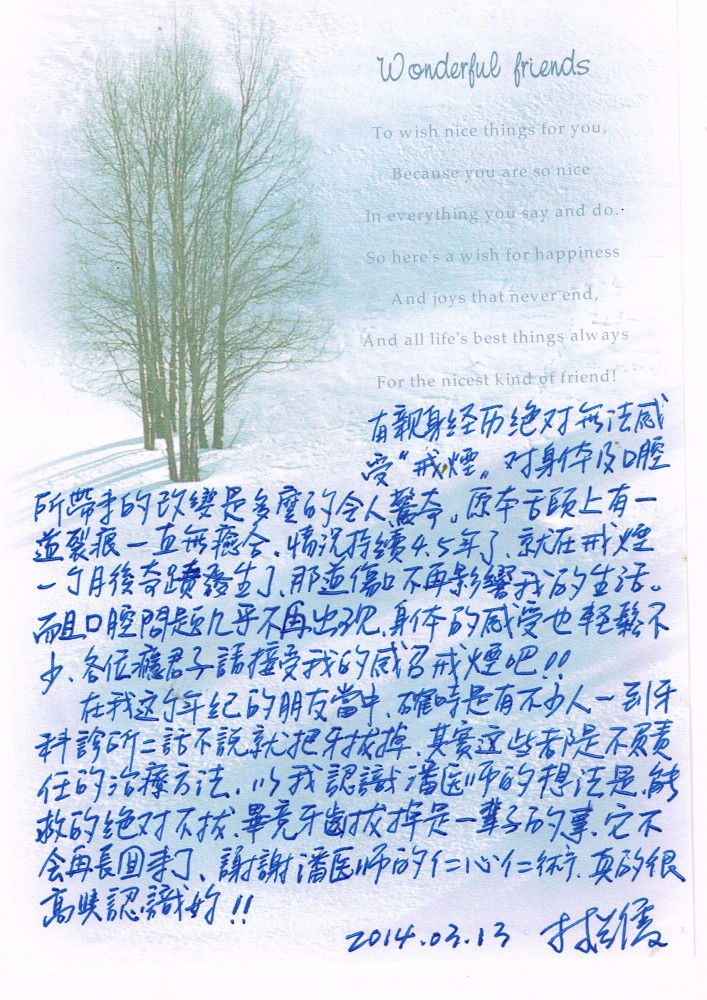 Wonderful friends
To wish nice things for you,
Because you are so nice
In everything you say and do.
So here's a wish for happiness
And joys that never end,
And all life's best things always
For the nicest kind of friend!
有親身经历绝对無法感
受“戒煙”对身体及口腔
所帶來的改變是多麼的令人驚奇。原本舌頭上有一
道裂痕一直無癒合、情況持續4.5年了、就在戒煙
一个月後奇蹟發生了、那道傷口不再影響我的生活。
而且口腔問題几乎不再出现、身体的感受也輕鬆不
少、各位癮君子請接受我的感召戒煙吧!!
在我这个年纪的朋友當中、確時是有不少人一到牙
科診所二話不說就把牙拔掉、其實这些都是不負責
任的治療方法、以我認識潘医师的想法是、能
救的绝对不拔、畢竟牙齒拔掉是一輩子的事、它不
会再長回來了、謝謝潘医师的仁心仁術、真的很
高興認識妳!!
2014.03.13